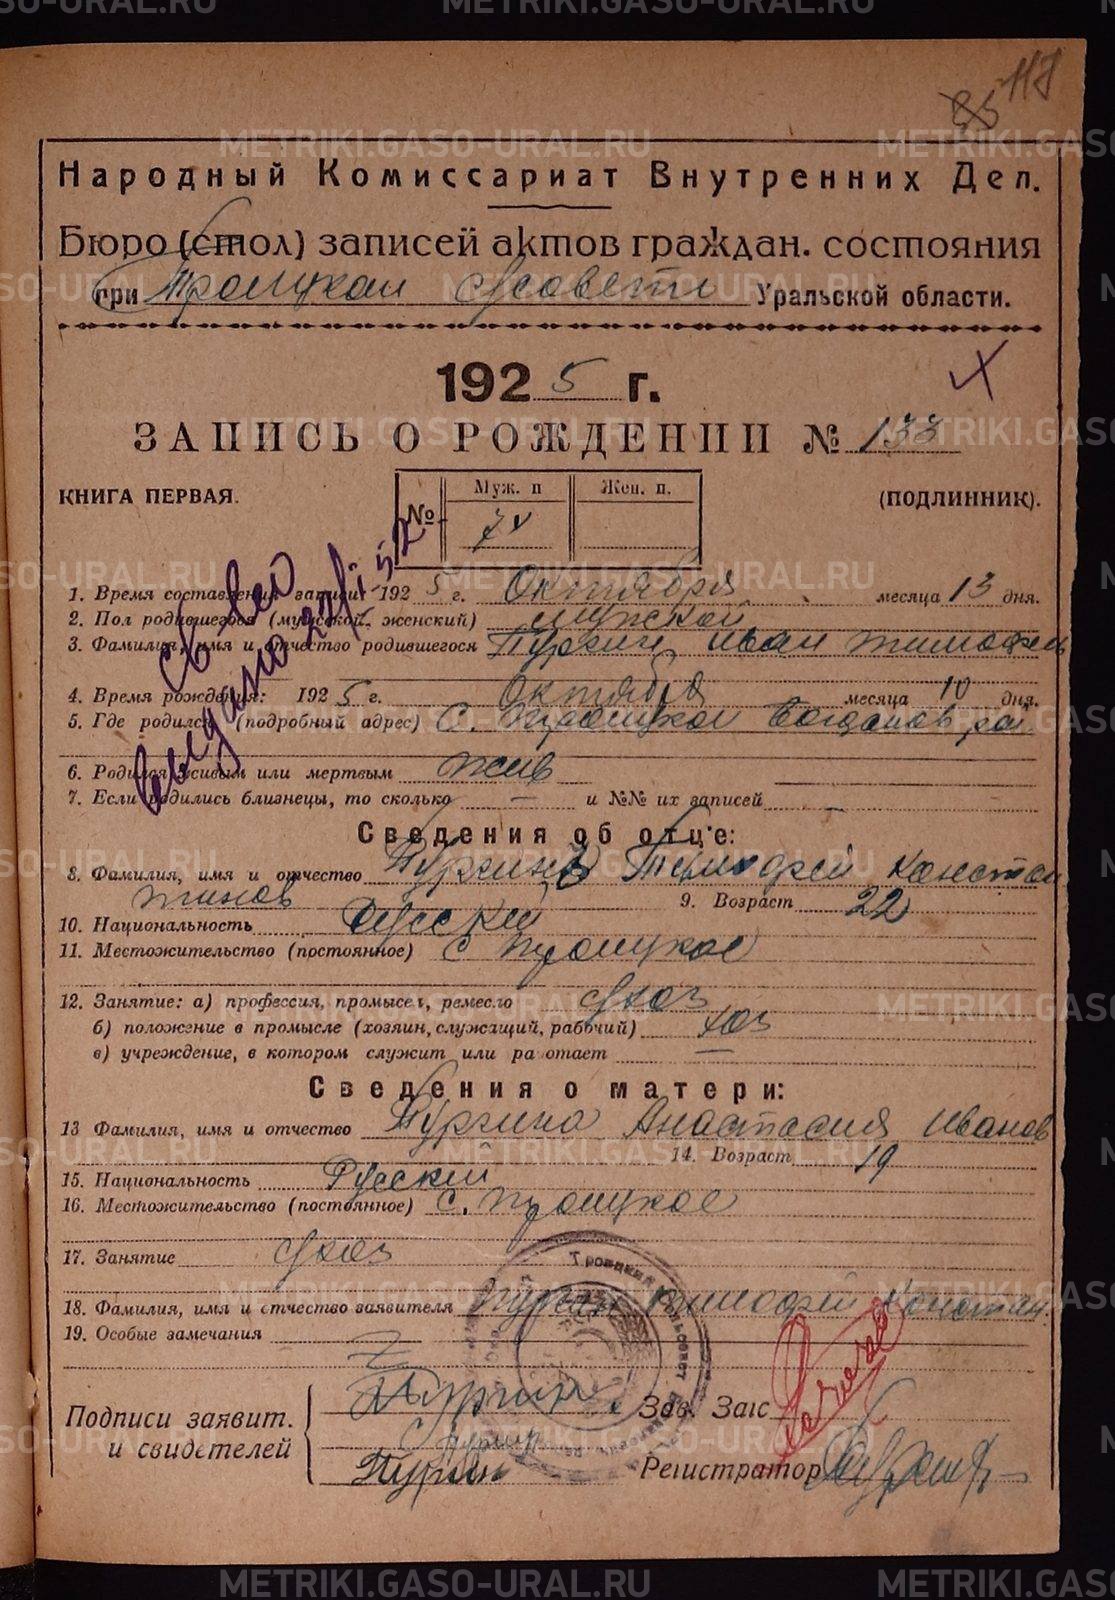 85 117
Народный Комиссариат Внутренних Дел.
Бюро (стол) записей актов граждан. состояния
при Троицком с/совети Уральской области.
1925 г.
ЗАПИСЬ О РОЖДЕНИИ № 133
КНИГА ПЕРВАЯ. № Муж. п Жен. п. (ПОДЛИННИК).
74
1. Время составления записи: 1925 г. Октября месяца 13 дня.
2. Пол родившегося (мужской, женский) мужской
3. Фамилия, имя и отчество родившегося Пургин Иван Тимофеев
4. Время рождения: 1925 г. Октября месяца 10 дня.
5. Где родился (подробный адрес) С. Троицкое Богданов. рай.
6. Родился живым или мертвым жив
7. Если родились близнецы, то сколько — и №№ их записей —
Сведения об отце:
8. Фамилия, имя и отчество Пургинъ Тимофей Констан
тинов 9. Возраст 22
10. Национальность Русский
11. Местожительство (постоянное) с Троицкое
12. Занятие: а) профессия, промысел, ремесло с/хоз
б) положение в промысле (хозяин, служащий, рабочий) хоз
в) учреждение, в котором служит или ра отает —
Сведения о матери:
13 Фамилия, имя и отчество Пургина Анастасия Иванов
14. Возраст 19
15. Национальность Русский
16. Местожительство (постоянное) с. Троицкое
17. Занятие с/хоз
18. Фамилия, имя и отчество заявителя Пургин Тимофей Констан.
19. Особые замечания
Подписи заявит.
и свидетелей
Пургин
Пургин
Пургин
Зав. Загс
Регистратор
Св-во
выдано 22/I-52
Троицкий сельсовет
METRIKI.GASO-URAL.RU